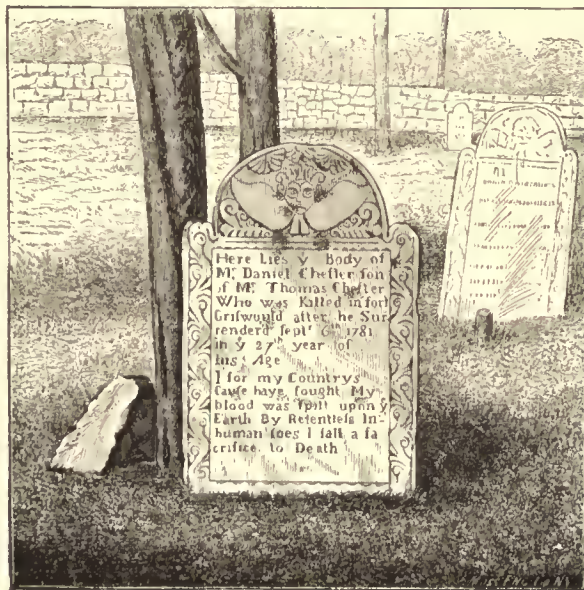 Here Lies ẏ Body of
Mr Daniel Cheſter ſon
of Mr Thomas Cheſter
Who was Killed in fort
Griſwould after he Sur
renderd ſeptr 6th 1781
in ẏ 27th year of
his Age
I for my Countrys
Cauſe have fought My
blood was ſpilt upon ẏ
Earth By Relentleſs In-
human foes I fall a ſa
crifice to Death